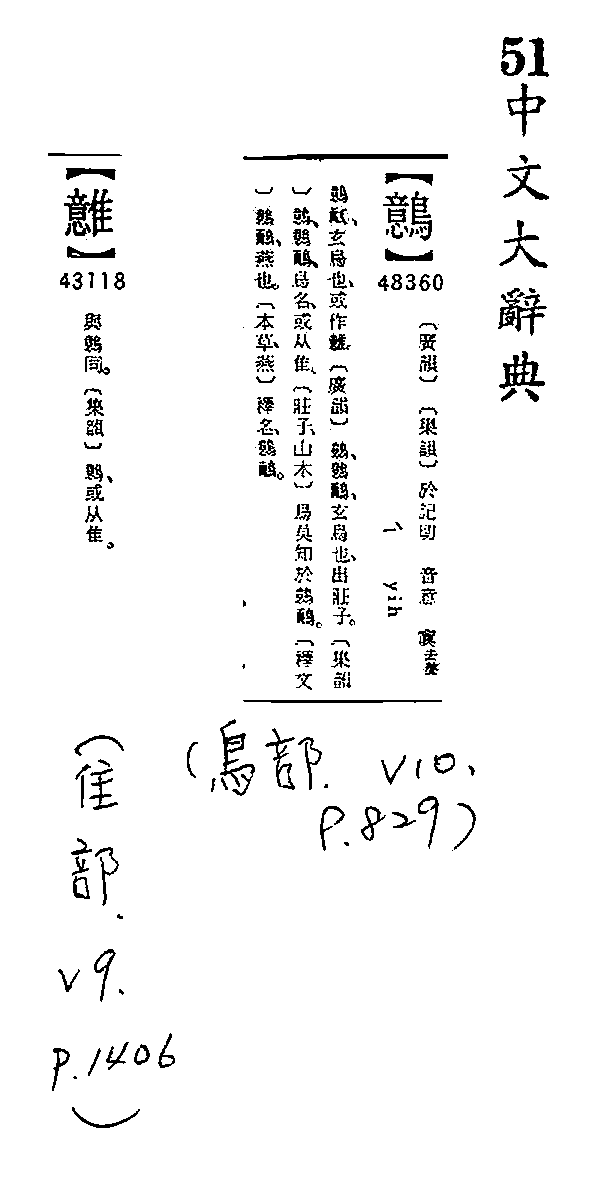 51中文大辭典
【鷾】
48360
〔廣韻〕〔集韻〕於記切 音意 寘去聲
ㄧˋ yih
鷾鴯、玄鳥也、或作〔廣韻〕鷾、鷾鴯、玄鳥也、出莊子。〔集韻
〕鷾、鷾鴯、鳥名、或从隹、〔莊子、山木〕鳥莫知於鷾鴯。〔釋文
〕鷾鴯、燕也。〔本草、燕〕釋名、鷾鴯。
(鳥部. V10,
P.829)
【】
43118
與鷾同。〔集韻〕鷾、或从隹。
(隹部. V9. P.1406)